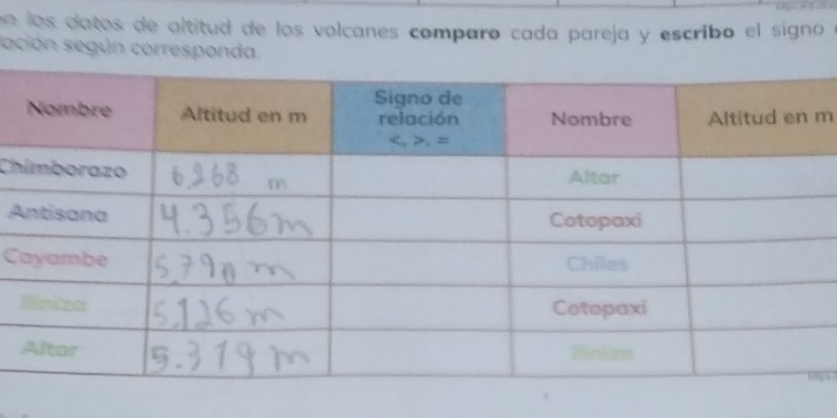 los datos de altitud de los volcanes comparo cada pareja y escribo el signo
según corresponda.
Nombre Altitud en m Signo de relación <, >, = Nombre Altitud en m
Chimborazo 6.268 m Altar
Antisana 4.356 m Cotopaxi
Cayambe 5.790 m Chiles
Iliniza 5.126 m Cotopaxi
Altar 5.319 m Iliniza